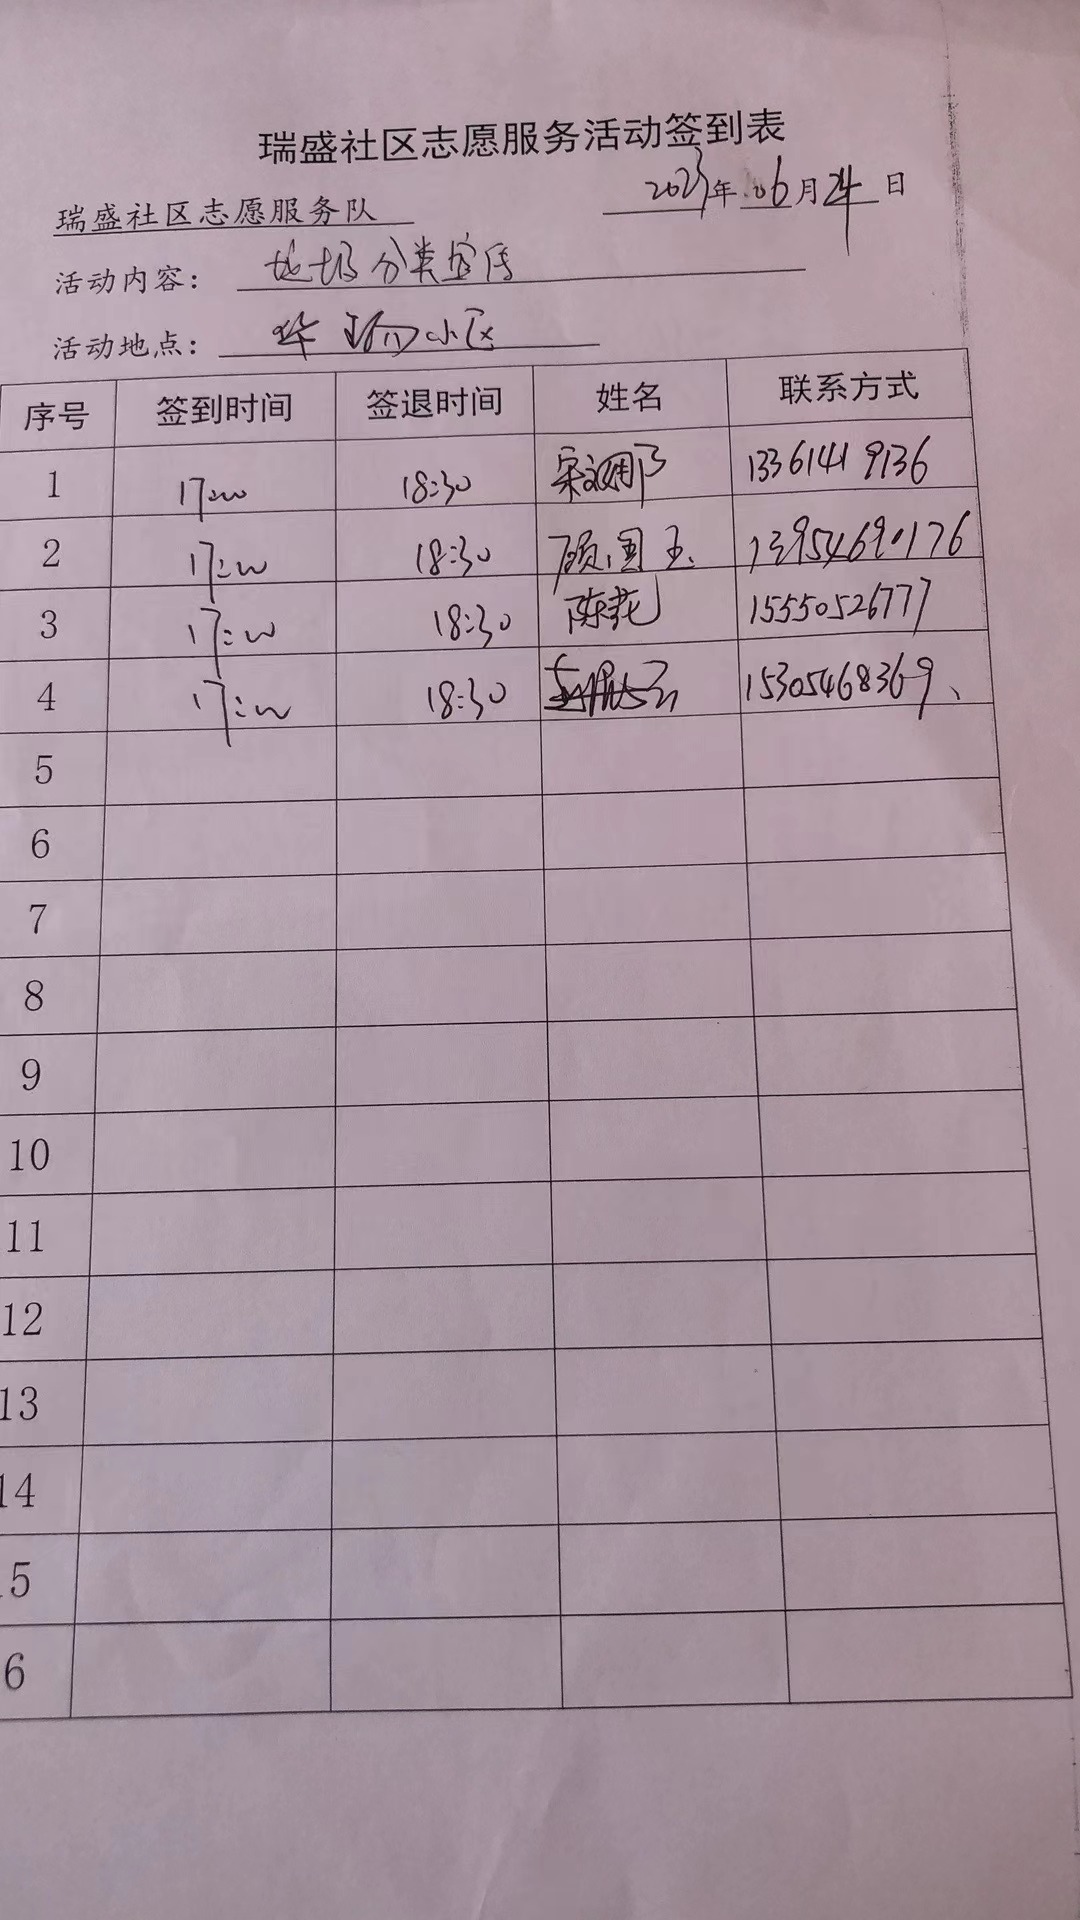 瑞盛社区志愿服务活动签到表
瑞盛社区志愿服务队 2023年06月24日
活动内容： 垃圾分类宣传
活动地点： 华 小区
序号 签到时间 签退时间 姓名 联系方式
1 17:00 18:30 宋 娜 13361419136
2 17:00 18:30 顾国玉 13954690176
3 17:00 18:30 陈花 15550526777
4 17:00 18:30 15305468369、
5
6
7
8
9
10
11
12
13
14
15
6